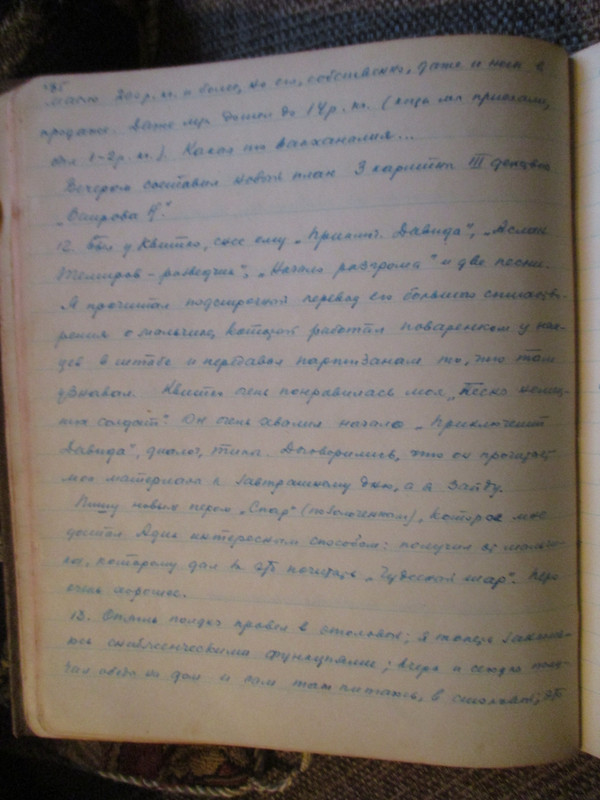 масло 200 р. кг. и более, но его, собственно, даже и нет в
продаже. дошел до 14 р. кг. (когда мы приехали,
был 1-2 р. кг.). Какая-то вакханалия...
Вечером составил новый план 3 картины III действия
12. Был у Квитко, снес ему „Приключ. Давида", „Аслан
- разведчик", „Начало разгрома" и две песни.
Я прочитал подстрочной перевод его большого стихотво-
рения о мальчике, который работал поваренком у нем-
цев в штабе и передавал партизанам то, что там
узнавал. Квитко очень понравилась моя „Песня немец-
ких солдат". Он очень хвалил начало „Приключений
Давида", диалог, типы. Договорились, что он прочитает
мои материалы к завтрашнему дню, а я зайду.
Пишу новым пером (позолоченным), которое мне
достал Адик интересным способом: получил от мальчи-
ка, которому дал за это почитать „Чудесный шар". Перо
очень хорошее.
13. Опять полдня провел в столовой; я теперь занима-
юсь снабженческими функциями; вчера и сегодня полу-
чал обеды на дом и сам там питаюсь, в столовой; это